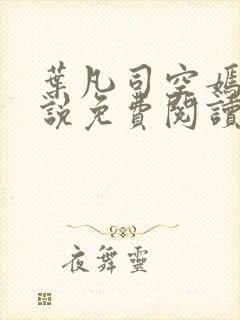 葉凡司空嫣
說免費閱讀
夜舞靈